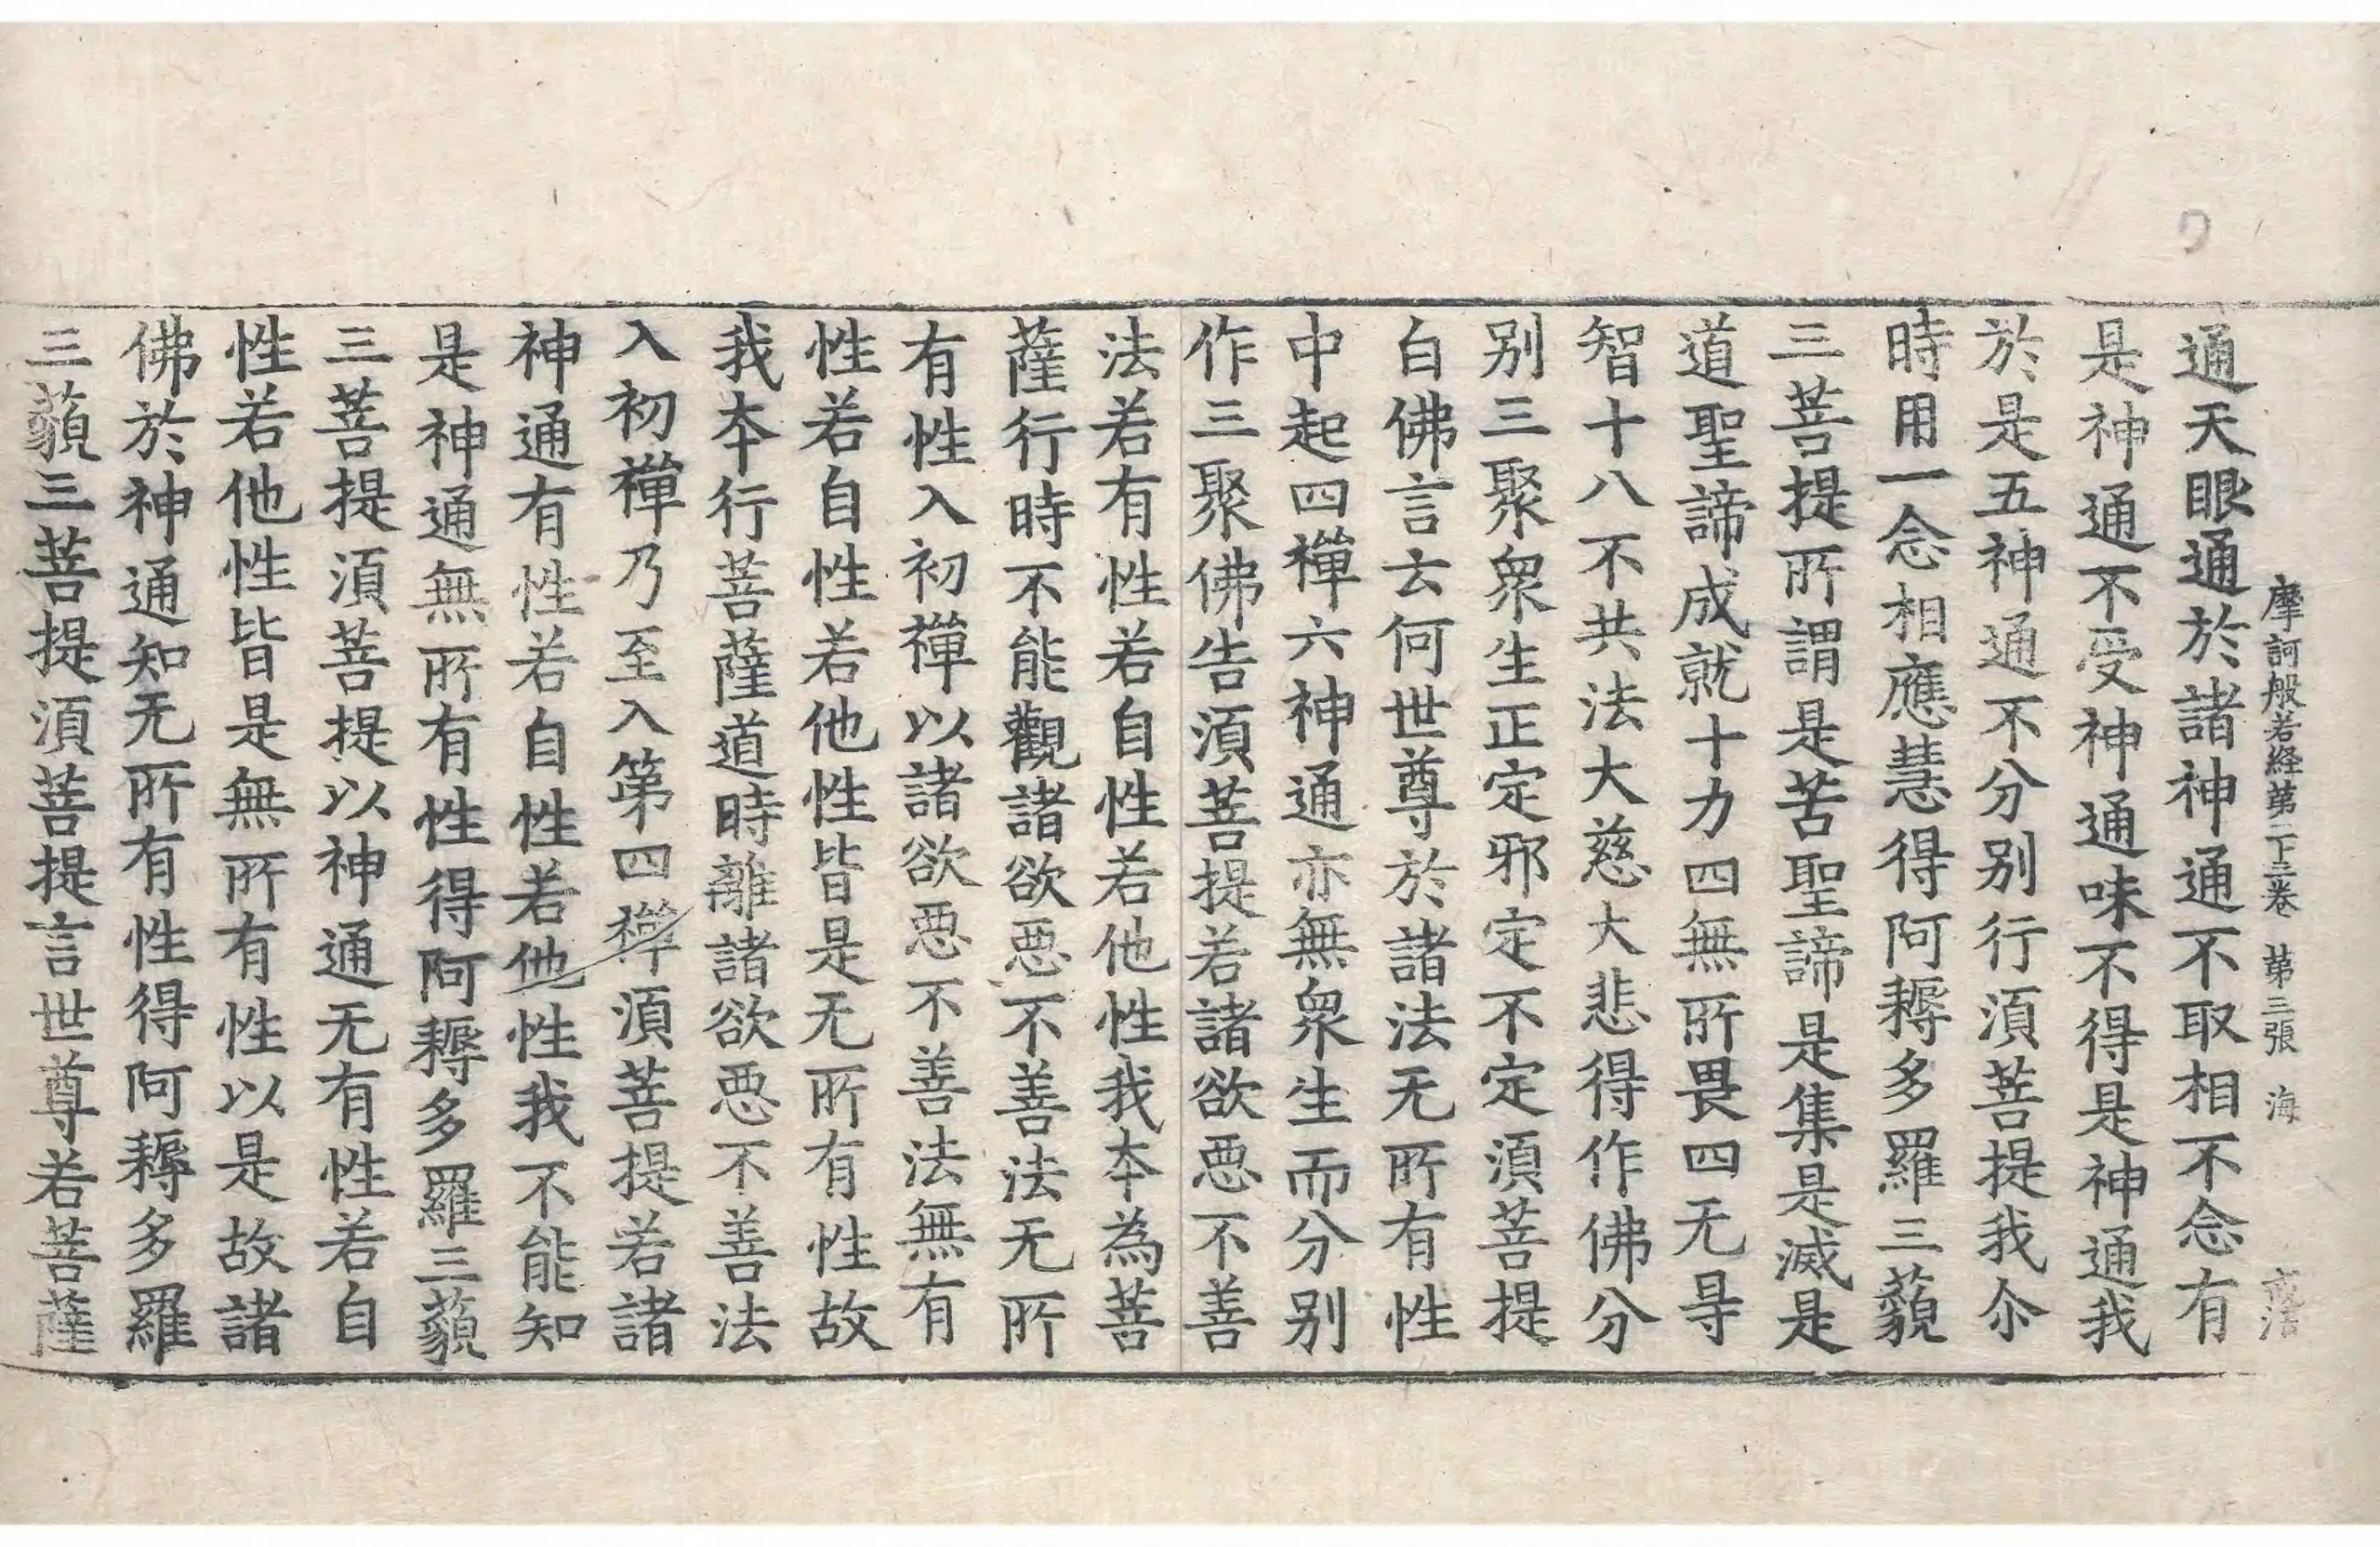 摩訶般若経第二十三卷 第三張 海
通天眼通於諸神通不取相不念有
是神通不受神通味不得是神通我
於是五神通不分别行湏菩提我尒
時用一念相應慧得阿耨多羅三藐
三菩提所謂是苦聖諦是集是滅是
道聖諦成就十力四無所畏四无㝵
智十八不共法大慈大悲得作佛分
别三聚衆生正定邪定不定湏菩提
白佛言云何世尊於諸法无所有性
中起四禪六神通亦無衆生而分别
作三聚佛告湏菩提若諸欲惡不善
法若有性若自性若他性我夲為菩
薩行時不能觀諸欲惡不善法无所
有性入初禪以諸欲惡不善法無有
性若自性若他性皆是无所有性故
我夲行菩薩道時離諸欲惡不善法
入初禪乃至入第四禪湏菩提若諸
神通有性若自性若他性我不能知
是神通無所有性得阿耨多羅三藐
三菩提湏菩提以神通无有性若自
性若他性皆是無所有性以是故諸
佛於神通知无所有性得阿耨多羅
三藐三菩提湏菩提言世尊若菩薩